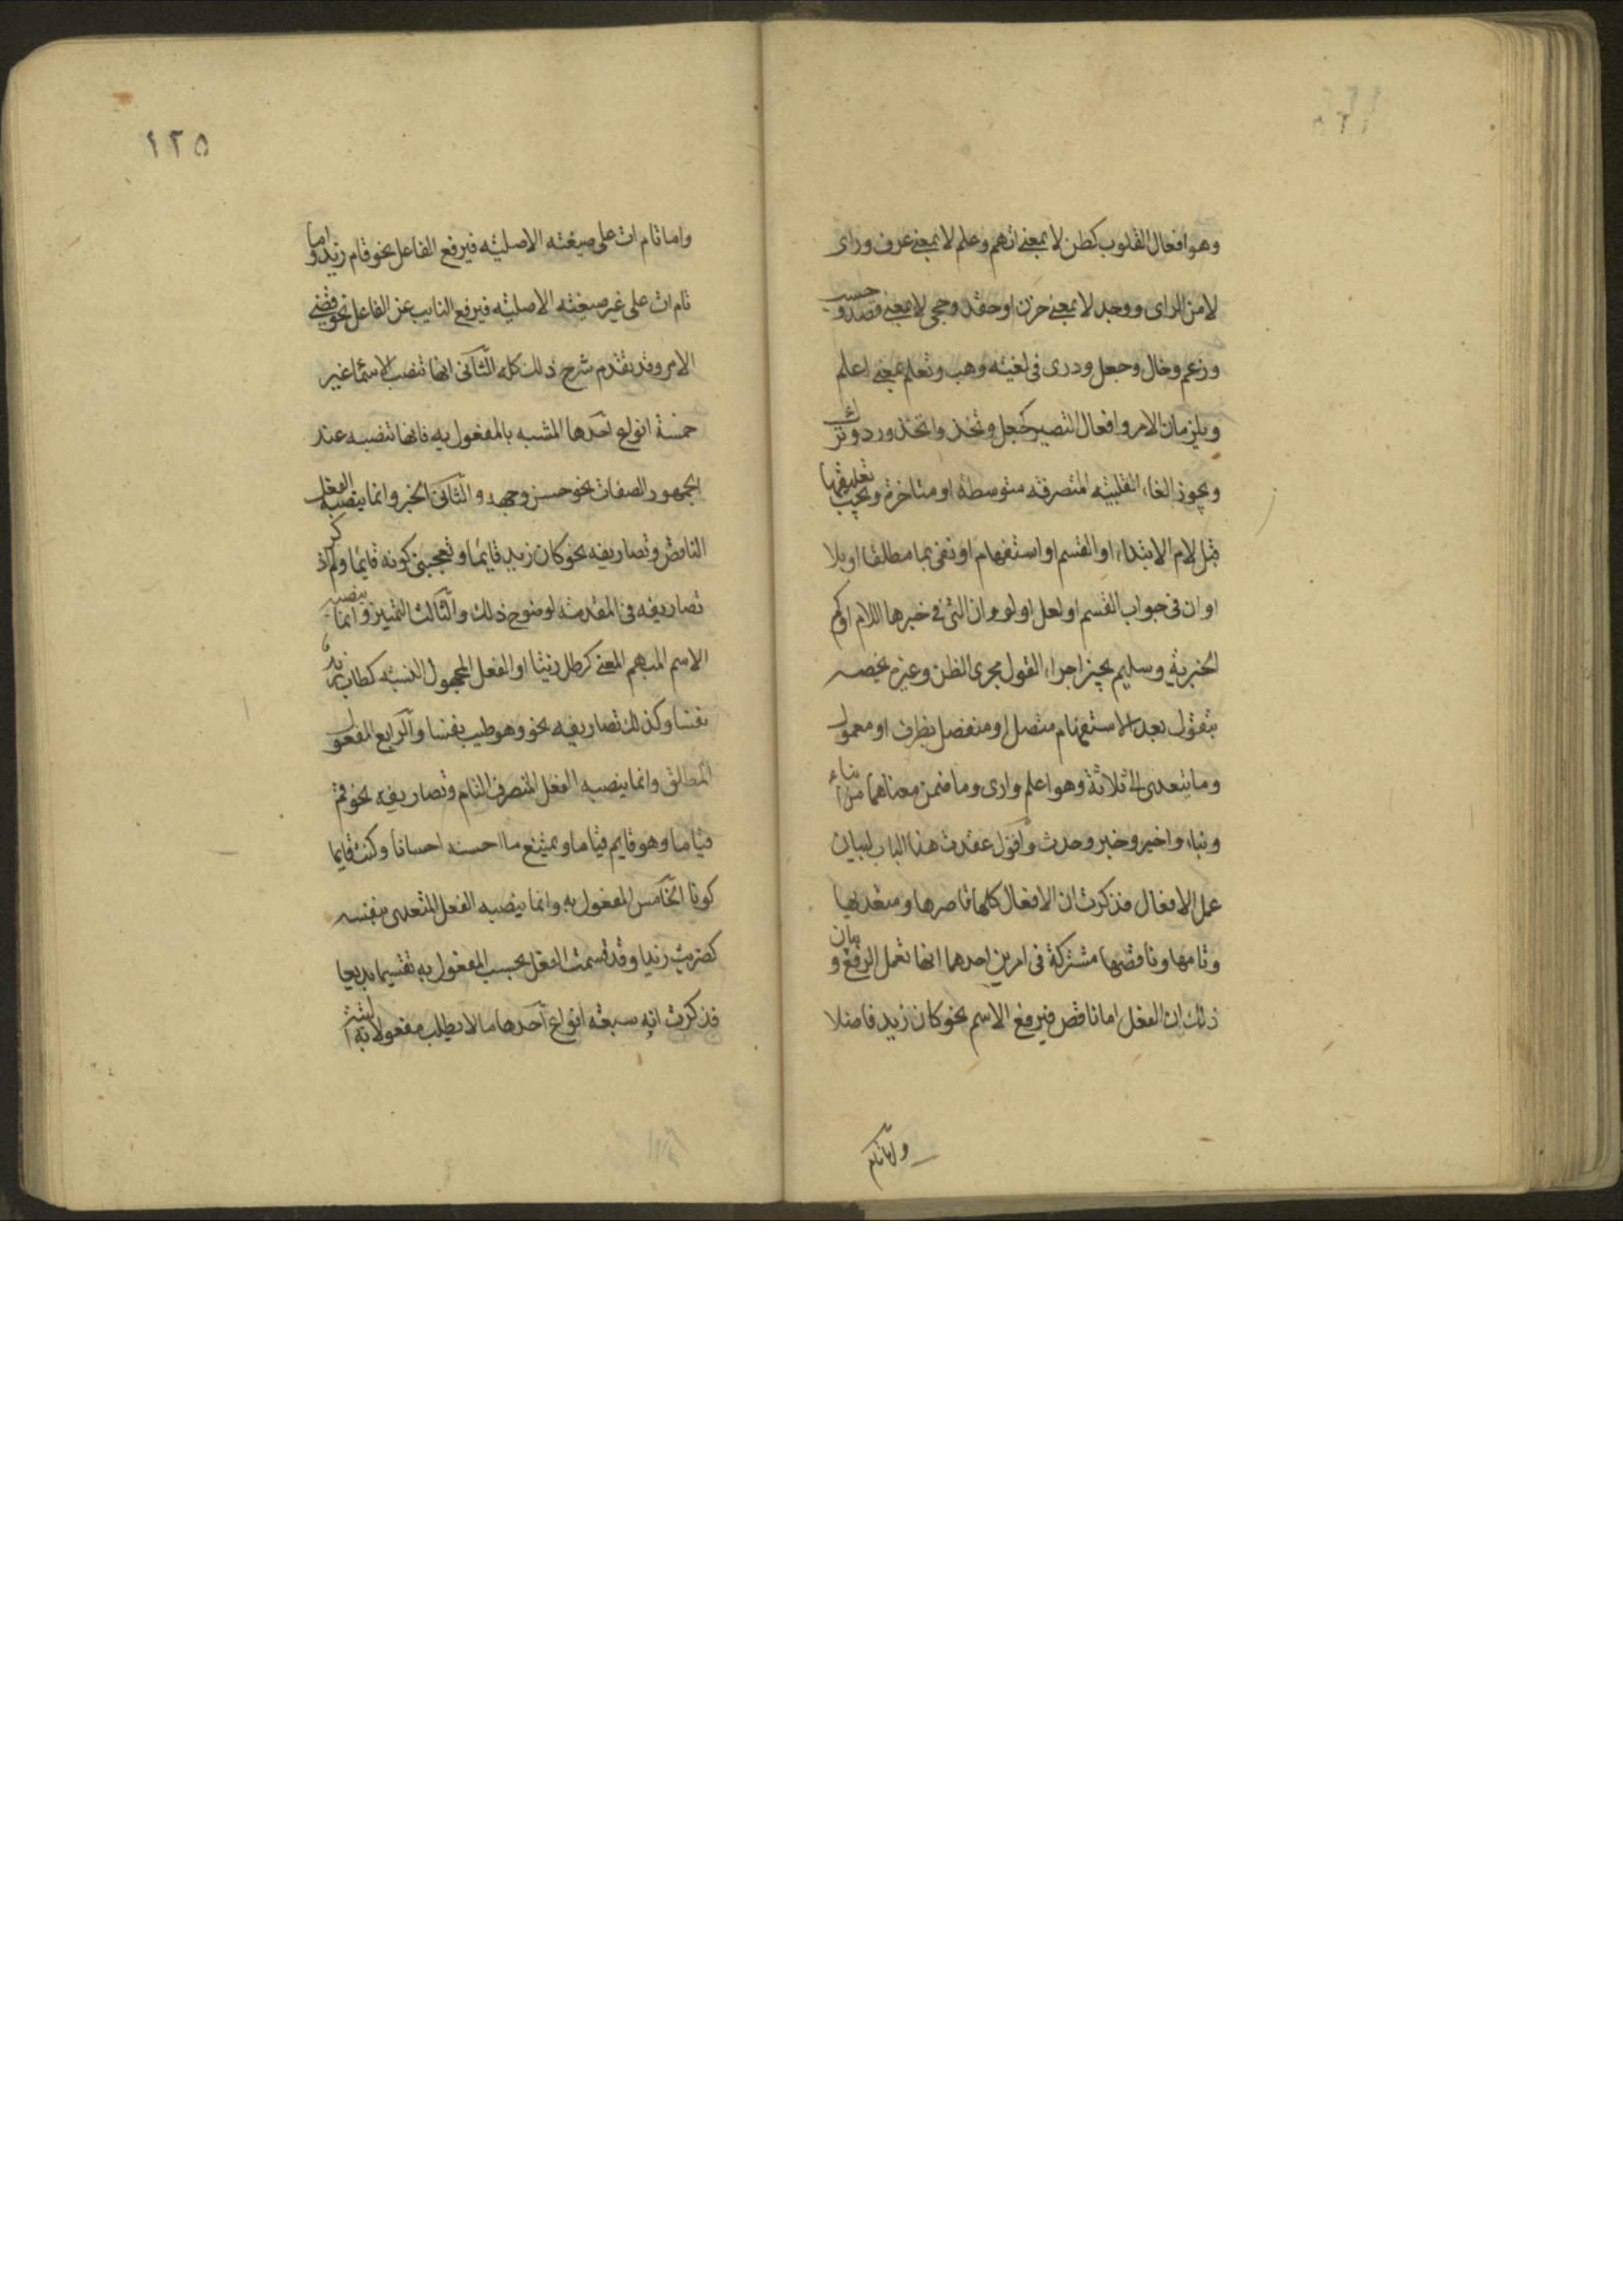 وهو افعال القلوب كظن لا بمعنى اتهم وعلم لا بمعنى عرف وراى
لا من الراى ووجد لا بمعنى حزن او حقد وحجى لا بمعنى قصد وحسب
وزعم وخال وجعل ودرى فى لغيته وهب وتعلم بمعنى اعلم
ويلزمان الامر وافعال التصيير كجعل وتخذ واتخذ ورد وترك
ويجوز الغاء القلبيه المتصرفه متوسطة او متاخرة ويجب تعليقها
قبل لام الابتداء او القسم او استفهام او نفى بما مطلقا او بلا
او ان فى جواب القسم او لعل او لو او ان التى فى خبرها اللام او كم
الخبرية وسليم يجيز اجراء القول مجرى الظن وغيره يخصه
بتقول بعد الاستفهام متصل او منفصل بظرف او معمول
وما يتعدى الى ثلاثة وهو اعلم وارى وما ضمن معناهما من انباء
ونباء واخبر وخبر وحدث واقول عقدت هذا الباب لبيان
عمل الافعال فذكرت ان الافعال كلها قاصرها ومتعديها
وتامها وناقصها مشتركة فى امرين احدهما انها تعمل الرفع وبيان
ذلك ان الفعل اما ناقص فيرفع الاسم نحو كان زيد فاضلا
واما تام
١٢٥
واما تام ات على صيغته الاصليه فيرفع الفاعل نحو قام زيد واما
تام ات على غير صيغته الاصليه فيرفع النايب عن الفاعل نحو قضى
الامر وقد تقدم شرح ذلك كله الثانى انها تنصب الاسما غير
خمسة انواع احدها المشبه بالمفعول به فانها تنصبه عند
الجمهور الصفات نحو حسن وجهه والثانى الخبر وانما ينصبه الفعل
الناقص وتصاريفه نحو كان زيد قايما وتعجبنى كونه قايما ولم اذكر
تصاريفه فى المقدمه لوضوح ذلك والثالث التمييز وانما ينصبه
الاسم المبهم المعنى كرطل زيتا او الفعل المجهول النسبه كطاب زيد
نفسا وكذلك تصاريفه نحو وهو طيب نفسا والرابع المفعول
المطلق وانما ينصبه الفعل المتصرف التام وتصاريفه نحو قم
قياما وهو قايم قياما ويمتنع ما احسنه احسانا وكنت قايما
كونا الخامس المفعول به وانما ينصبه الفعل المتعدى بنفسه
كضربت زيدا وقد قسمت الفعل بحسب المفعول به تقسيما بديعا
فذكرت انه سبعه انواع احدها ما لا يطلب مفعولا به البته